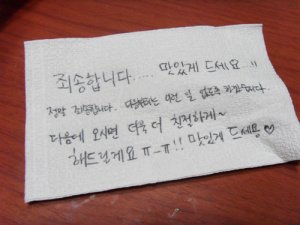 죄송합니다..... 맛있게 드세요..!!
정말 죄송합니다. 다음부터는 이런 일 없도록 하겠습니다.
다음에 오시면 더욱 더 친절하게~
해드릴게요 ㅠ-ㅠ!! 맛있게 드세용♡